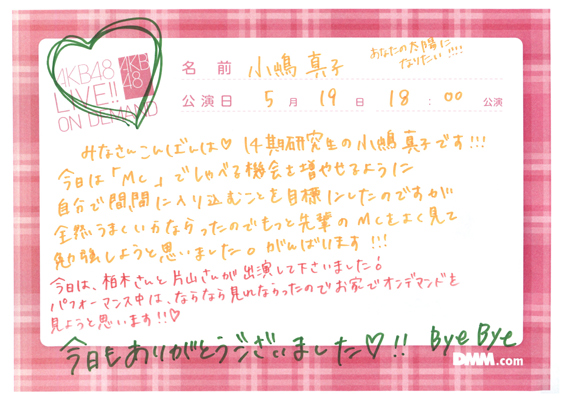 AKB48
LIVE!!
ON DEMAND
AKB
48
名前 小嶋 真子
あなたの太陽に
なりたい!!!!
公演日 5月19日 18:00 公演
みなさんこんばんは♡ 14期研究生の小嶋真子です!!!
今日は「MC」でしゃべる機会を増やせるように
自分で間間に入り込むことを目標にしたのですが
全然うまくいかならったのでもっと先輩のMCをよく見て
勉強しようと思いました。がんばります!!!
今日は、柏木さんと片山さんが出演して下さいました!
パフォーマンス中は、ならなら見れならったのでお家でオンデマンドを
見ようと思います!!♡
今日もありがとうございました♡!! Bye Bye
DMM.com